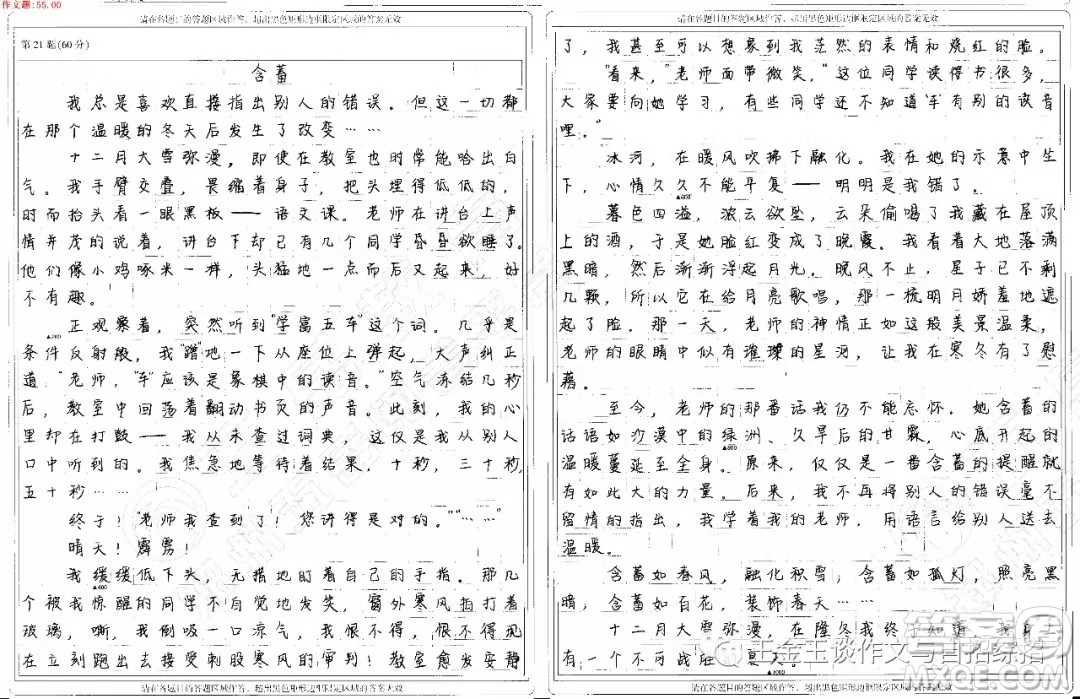 作文题:55.00
请在各题目的答题区域作答，超出黑色矩形边框限定区域的答案无效
第21题(60分)
含蓄
我总是喜欢直接指出别人的错误。但这一切都
在那个温暖的冬天后发生了改变……
十二月大雪弥漫，即使在教室也时常能哈出白
气。我手臂交叠，畏缩着身子，把头埋得低低的，
时而抬头看一眼黑板——语文课。老师在讲台上声
情并茂的说着，讲台下却已有几个同学昏昏欲睡了。
他们像小鸡啄米一样，头猛地一点而后又起来，好
不有趣。
正观察着，突然听到“学富五车”这个词。几乎是
条件反射般，我“蹭”地一下从座位上弹起，大声纠正
道：“老师，‘车’应该是象棋中的读音。”空气冻结几秒
后，教室中回荡着翻动书页的声音。此刻，我的心
里却在打鼓——我从未查过词典，这仅是我从别人
口中听到的。我焦急地等待着结果，十秒，三十秒，
五十秒……
终于！“老师我查到了！您讲得是对的。”“……”
晴天！霹雳！
我缓缓低下头，无措地盯着自己的手指。那几
个被我惊醒的同学不自觉地发笑，窗外寒风拍打着
玻璃，嘶，我倒吸一口凉气，我恨不得，恨不得现
在立刻跑出去接受刺股寒风的审判！教室愈发安静
请在各题目的答题区域作答，超出黑色矩形边框限定区域的答案无效
请在各题目的答题区域作答，超出黑色矩形边框限定区域的答案无效
了，我甚至可以想象到我茫然的表情和烧红的脸。
“看来，”老师面带微笑，“这位同学读得书很多，
大家要向她学习，有些同学还不知道‘车’有别的读音
哩。”
冰河，在暖风吹拂下融化。我在她的示意中坐
下，心情久久不能平复——明明是我错了。
暮色四溢，浓云欲坠，云朵偷喝了我藏在屋顶
上的酒，于是她脸红变成了晚霞。我看着大地落满
黑暗，然后渐渐浮起月光。晚风不止，星子已不剩
几颗，所以它在给月亮歌唱，那一梳明月娇羞地遮
起了脸。那一天，老师的神情正如这般美景温柔，
老师的眼睛中似有璀璨的星河，让我在寒冬有了慰
藉。
至今，老师的那番话我仍不能忘怀。她含蓄的
话语如沙漠中的绿洲、久旱后的甘霖，心底开起的
温暖蔓延至全身。原来，仅仅是一番含蓄的提醒就
有如此大的力量。后来，我不再将别人的错误毫不
留情的指出，我学着我的老师，用语言给别人送去
温暖。
含蓄如春风，融化积雪；含蓄如孤灯，照亮黑
暗；含蓄如百花，装饰春天……
十二月大雪弥漫，在隆冬我终于知道，我身
有一个不可战胜
王金玉谈作文与
请在各题目的答题区域作答，超出黑色矩形边框限定区域的答案无效